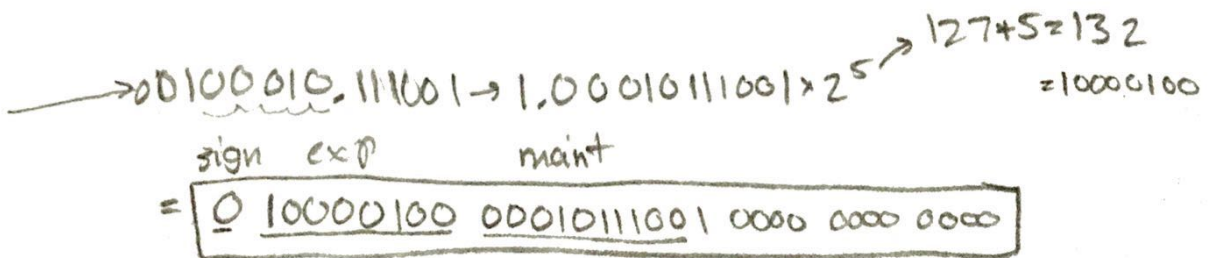 127+5=132
→00100010.111001→1.00010111001×2^5↗
=10000100
sign exp maint
= 0 10000100 00010111001 0000 0000 0000